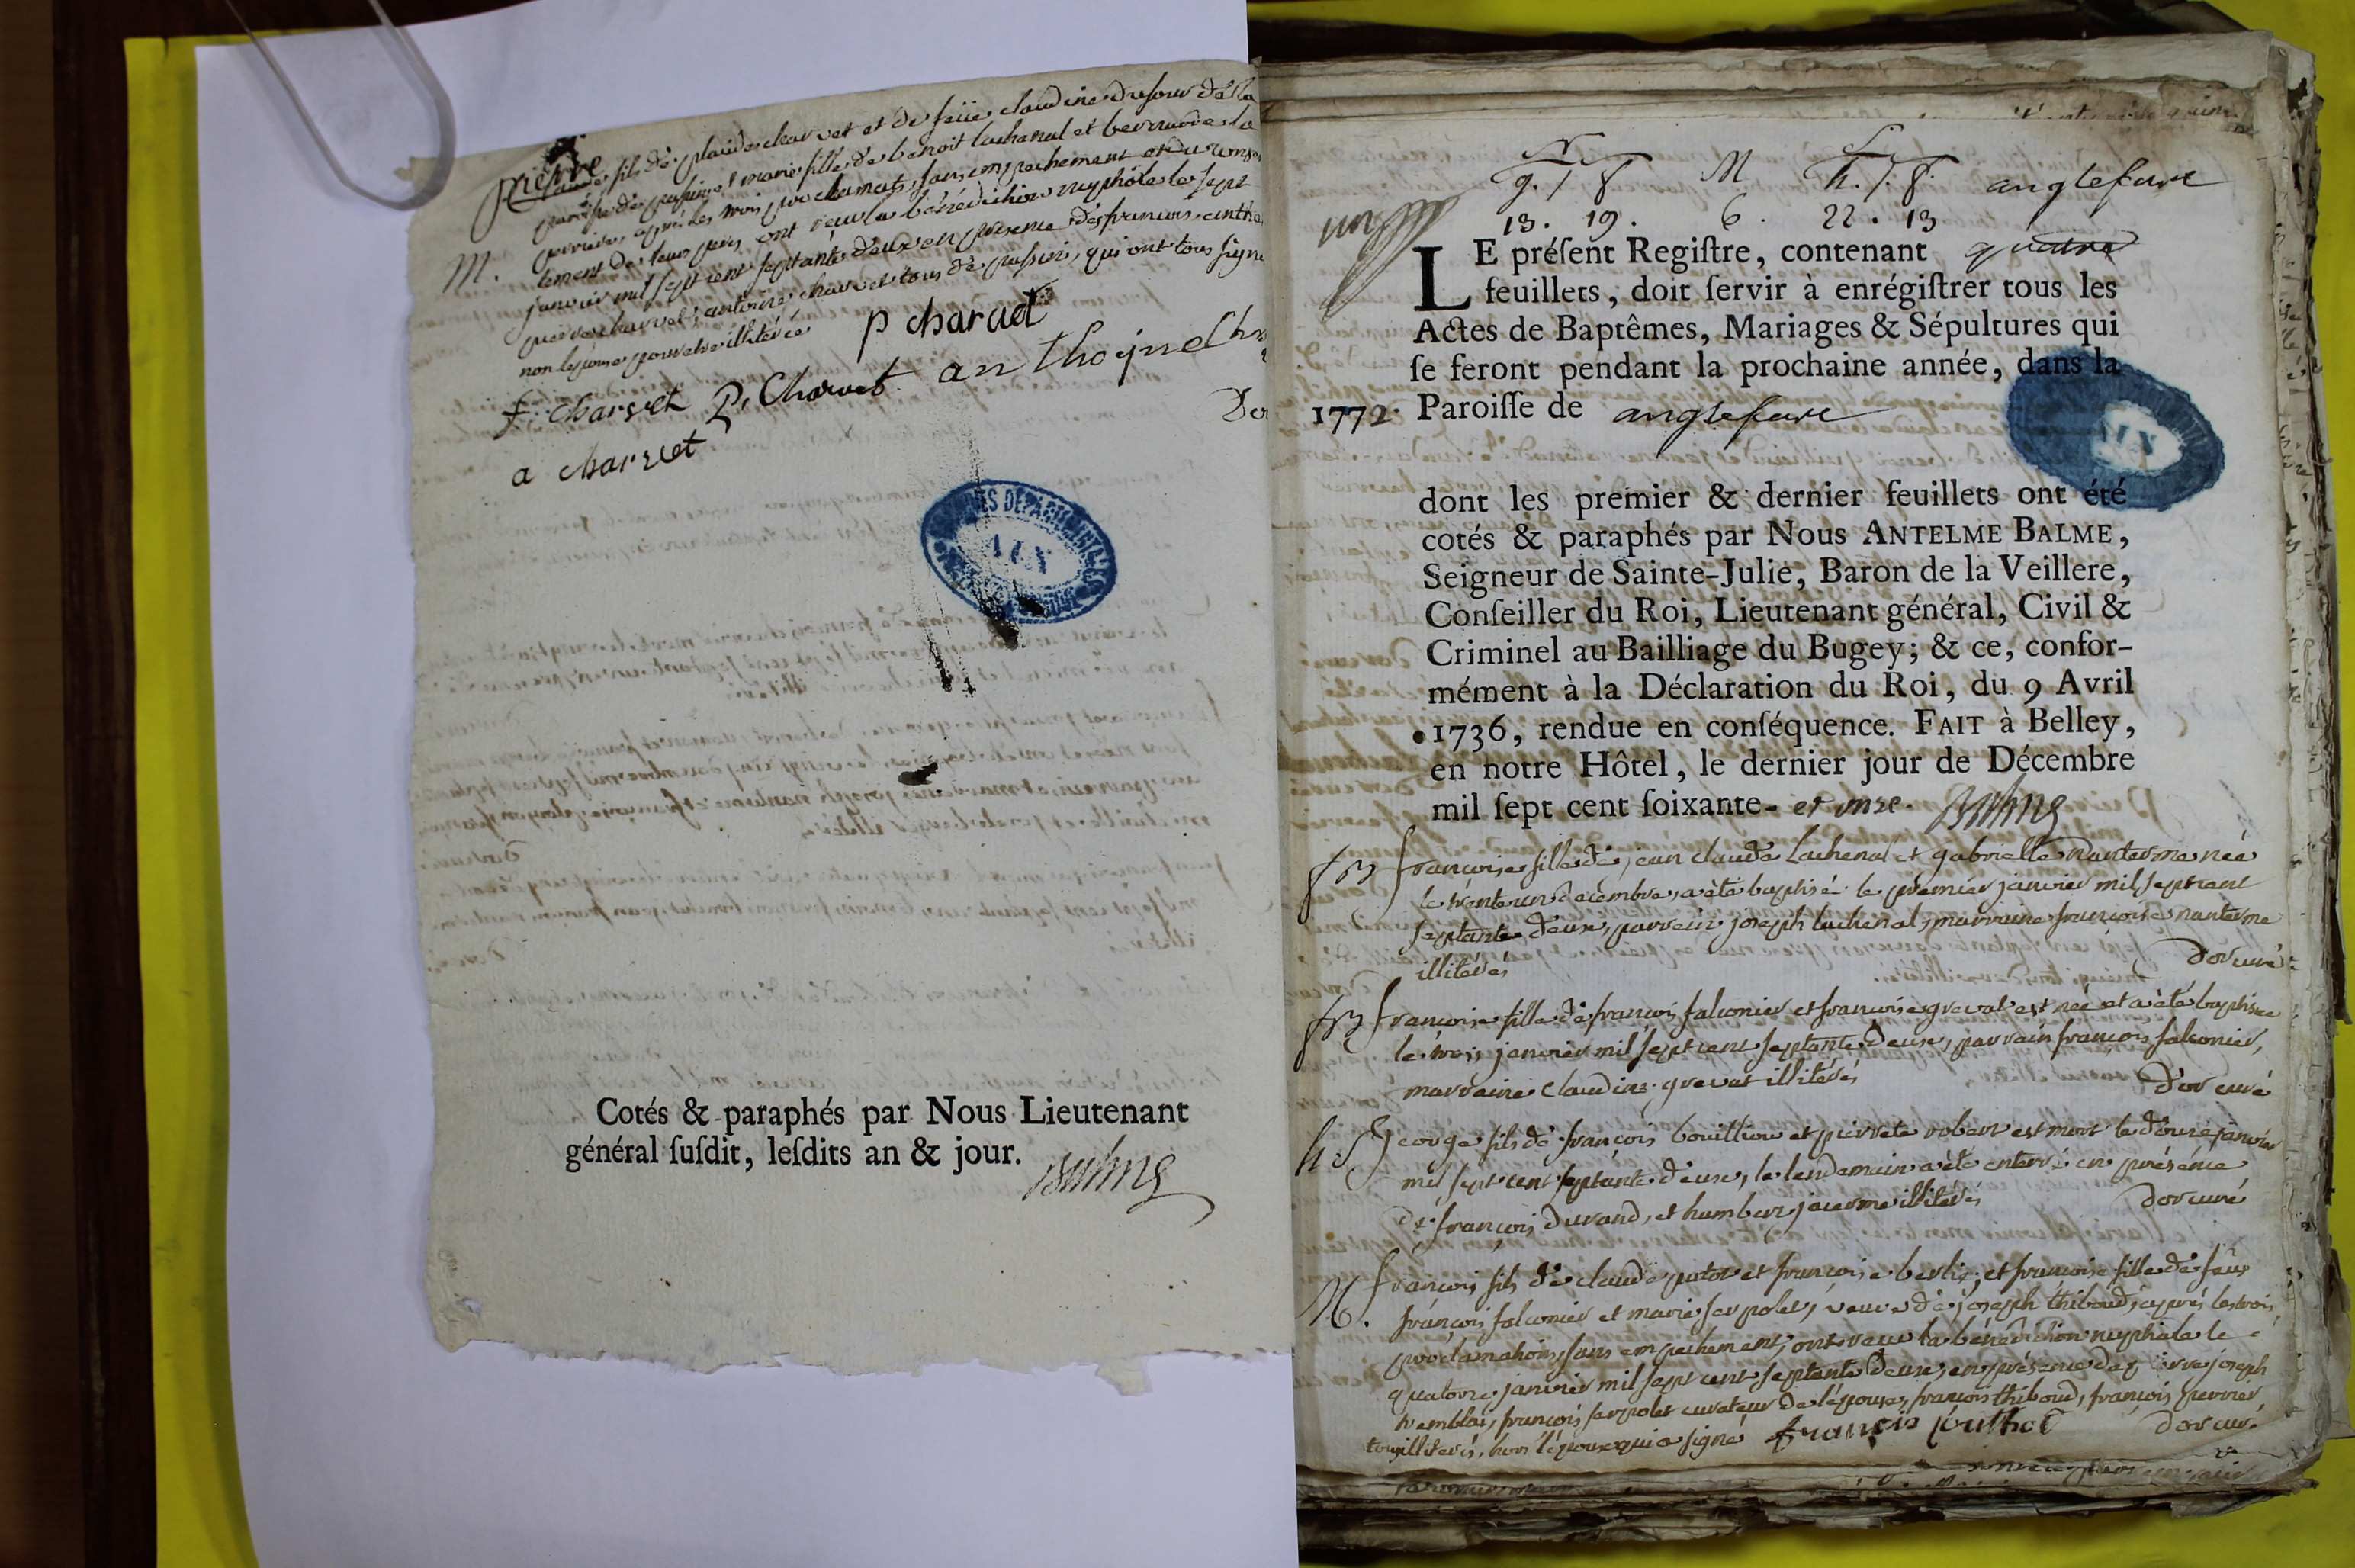 pierre fils de claude charvet et de feüe claudine dufour de la
paroisse de pussine et marie fille de benoit luchenal et bernarde la
perriere, après les trois proclamats, sans empechement et du consen
tement de leurs peres, ont reçu la bénédiction nuptiale le sept
M.
janvier mil sept cent septante deux en présence de françois anthe
pierre charvet, antoine charvet tous de pussine, qui ont tous signé
non lepouse pour etre illiterée
p charvet
f. charvet P. Charvet anthoyne Char
a charvet
Dor
ARCHIVES DÉPARTEMENTALES
AIN
Cotés & paraphés par Nous Lieutenant
général ſuſdit, leſdits an & jour. Balme
N. S.
g. f M h. f. anglefort
13. 19. 6. 22. 13
LE préſent Regiſtre, contenant quatre
feuillets, doit ſervir à enrégiſtrer tous les
Actes de Baptêmes, Mariages & Sépultures qui
ſe feront pendant la prochaine année, dans la
1772. Paroiſſe de anglefort
AIN
dont les premier & dernier feuillets ont été
cotés & paraphés par Nous ANTELME BALME,
Seigneur de Sainte-Julie, Baron de la Veillere,
Conſeiller du Roi, Lieutenant général, Civil &
Criminel au Bailliage du Bugey; & ce, confor-
mément à la Déclaration du Roi, du 9 Avril
1736, rendue en conſéquence. FAIT à Belley,
en notre Hôtel, le dernier jour de Décembre
mil ſept cent ſoixante- et onze. Balme
françoise fille de jean claude Lachenal et gabrielle Nanterme née
le trente un decembre, a été baptisé le premier janvier mil sept cent
septante deux, parrein joseph luchenal, marraine françoise nanterme
illiterés dor curé
françoise fille de françois falconier et françoise grevat est née et a été baptisée
le trois janvier mil sept cent septante deux, parrain françois falconier,
marraine claudine grevat illiterés d'or curé
h. S George fils de françois bouillion et pierrete robert est mort le douze janvier
mil sept cent septante deux, le lendemain a été enterré en présence
de françois durand, et humbert jacerme illiterés dor curé
M. françois fils de claude putot et françoise berlie; et françoise fille de feus
françois falconier et marie serpolet, veuve de joseph thiboud, après les trois
proclamations, sans empechement, ont reçu la bénédiction nuptiale le
quatorze janvier mil sept cent septante deux, en présence de pierre joseph
tremblai, françois serpolet curateur de l'épouse, françois thiboud, françois perrier
tous illiterés, hors l'époux qui a signé françois puthod dor curé